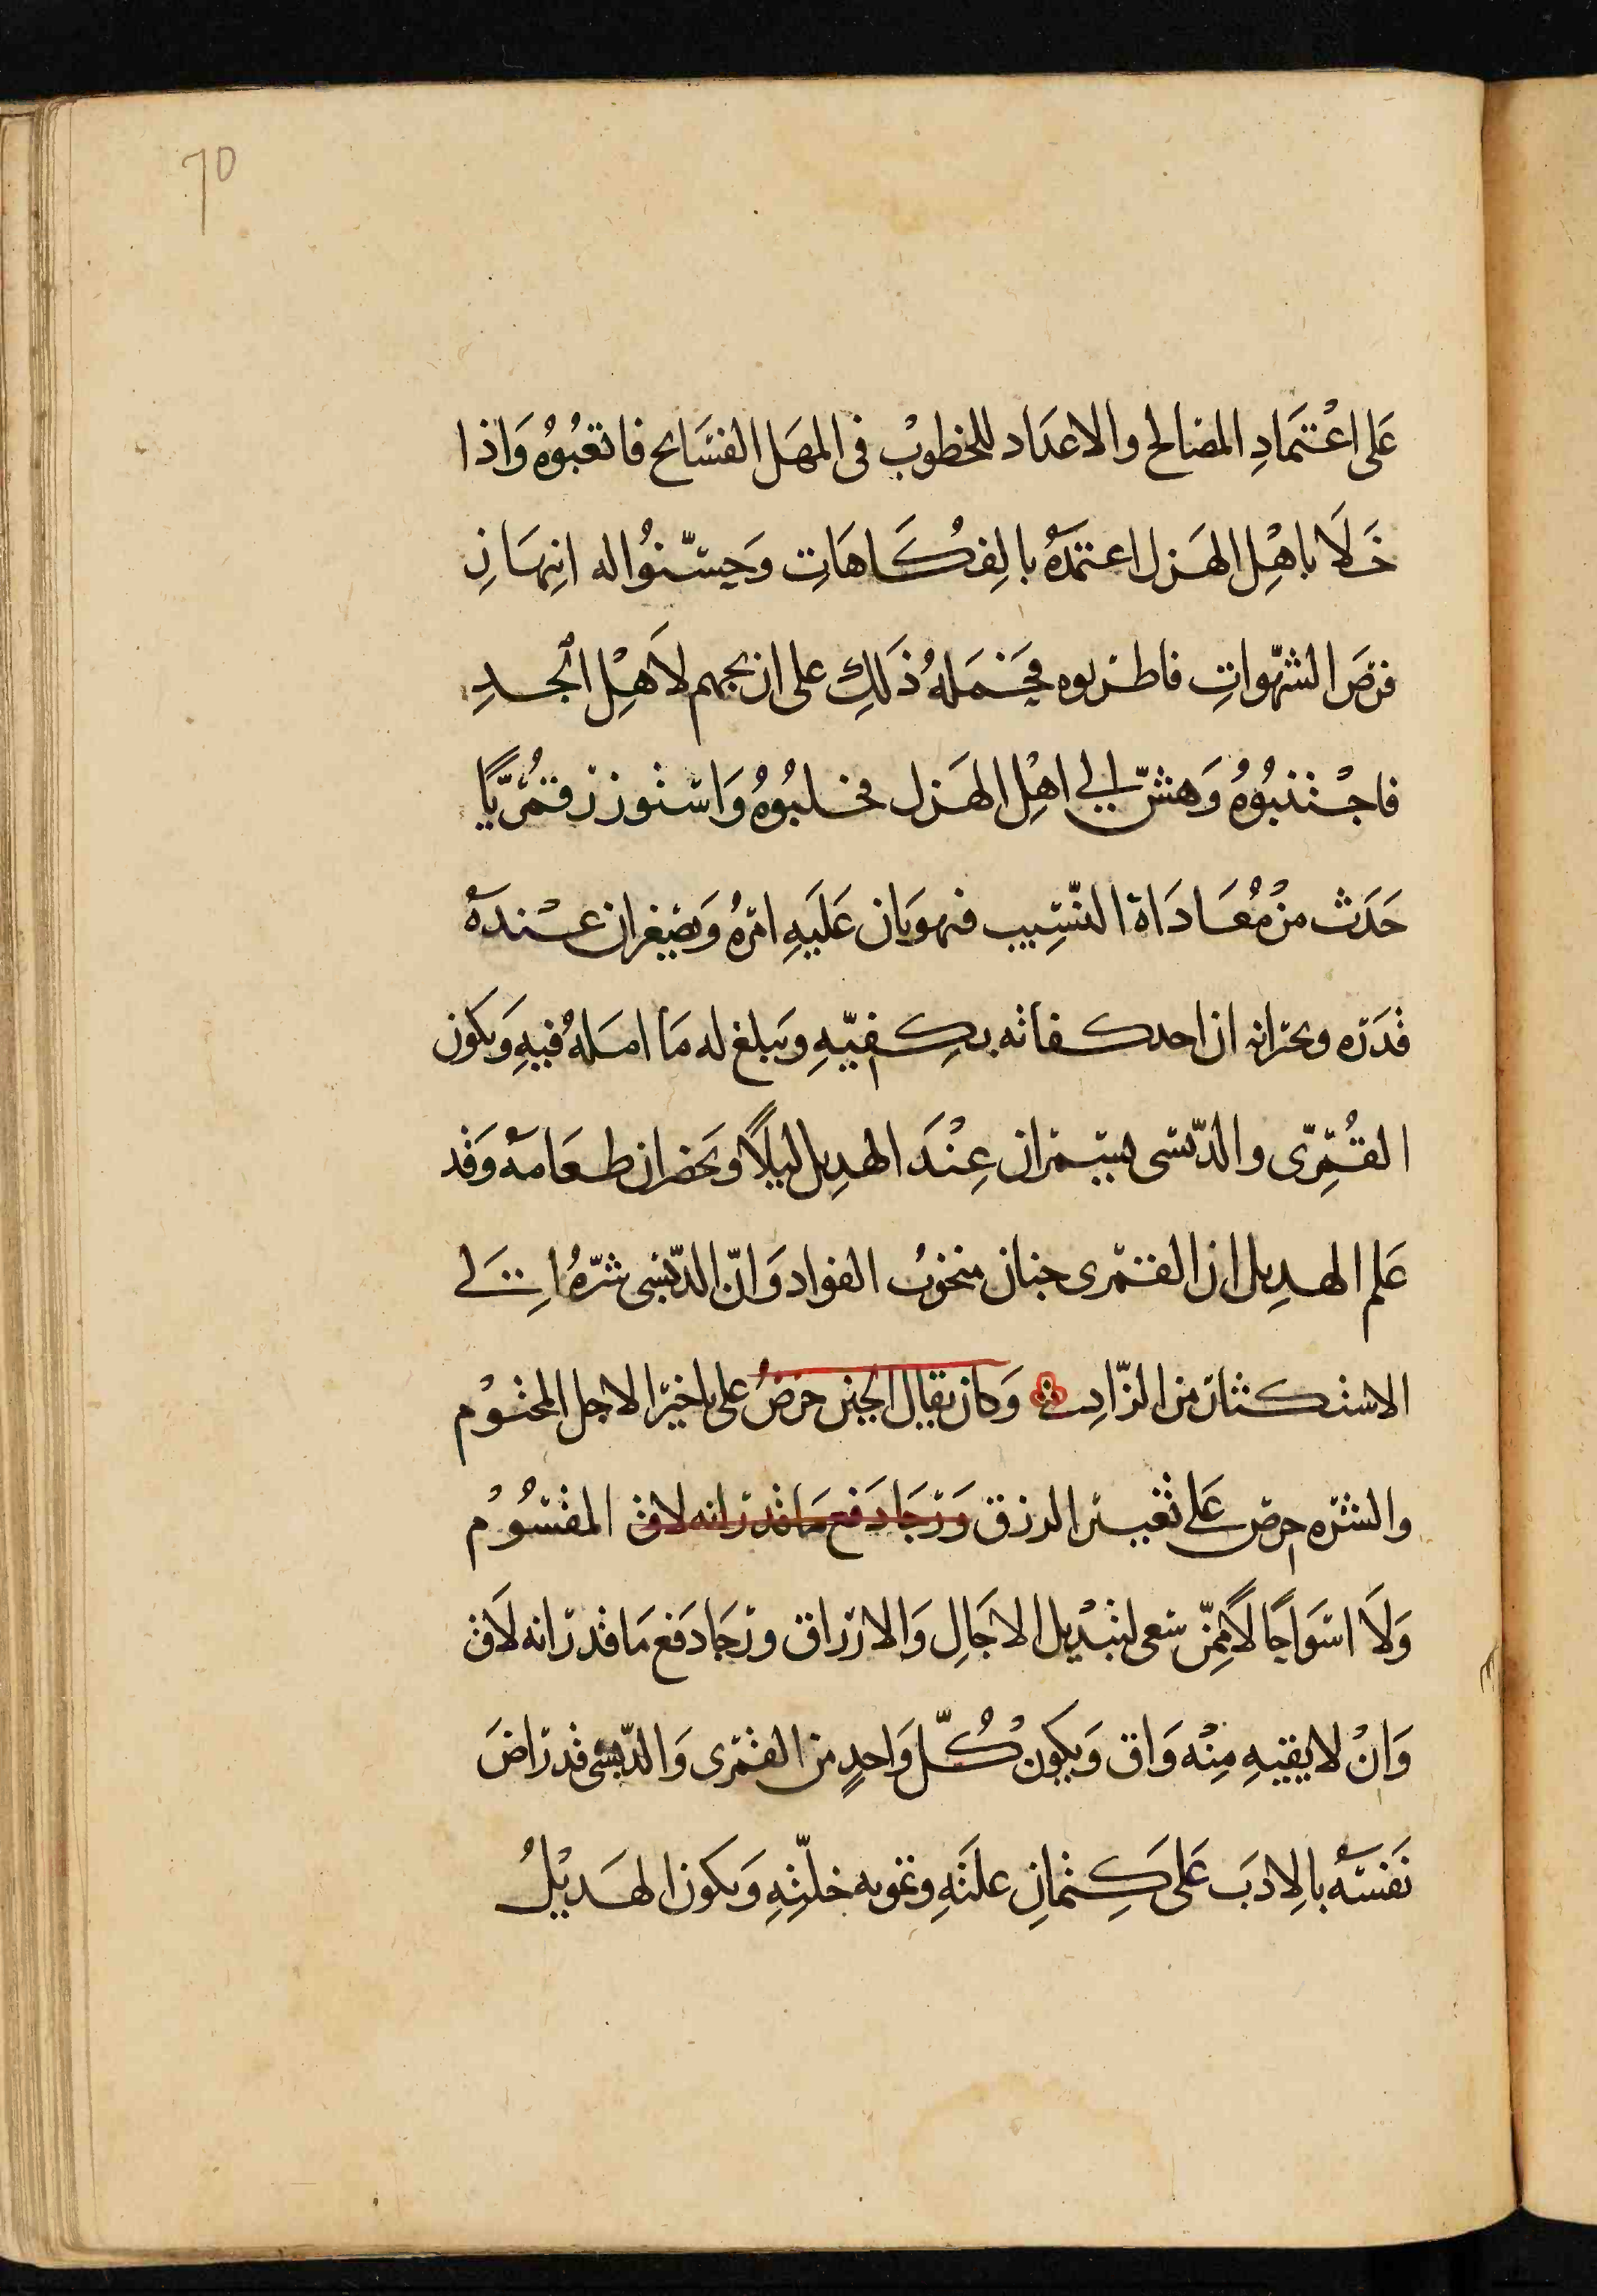 70
عَلى اعْتمَادِ المصَالح والاعدَاد للخطوبْ فى المهَل الفسَايح فاتعَبُوهُ وَاذا
خَلَا باهْلِ الهَزل اعتمَدَهُ بالفِكَاهَاتِ وَحسّنُوا له انتهَاز
فرَصَ الشهَواتِ فاطربوه فحَمَلهُ ذَلكِ على ان تجهم لاَهْلِ الجِدِ
فاجْتنَبُوْهُ وَهَشّ الى اهْلِ الهَزل فخلبُوهُ وَاستوزر قمُريًّا
حَدَث مِنْ مُعَادَاة النّسِيب فيهوَنان عَلَيهِ امرَهُ وَيصَغران عنْدهُ
قدَرَه ويخبرانه ان احد كفاته يكِفيهِ ويَبلغ له مَا امَلهُ فيهِ وَيكون
القُمْرِىّ والدّبسى يسمران عِنْدَ الهدِيل ليلًا ويَحضران طعَامه وَقد
عَلم الهدِيل ان القمرى جبان منخوبُ الفواد وَانّ الدّبسى شرِهُ الى
الاستكثار من الزّادِ وَكان يقال الجبن حرصُ على تاخير الاجل المحتوْم
والشرَه حرصٌ عَلى تغيير الرزق وَرَجَا دَفع مَا قدر انه لاق المقسُوْم
وَلَا اسوَا حَالًا ممِنّ سَعى لتبْديل الاجَالِ وَالارزاق ورَجَا دَفع مَا قدر انه لَاق
وَانْ لا يقيهِ مِنْه وَاق وَيكون كُلّ وَاحدٍ من القمرى وَالدّبسى قد رَاضَ
نَفسَهُ بالادَب عَلى كِتمانِ علتهِ وتمويه خلتّهِ وَيكون الهَديْلُ